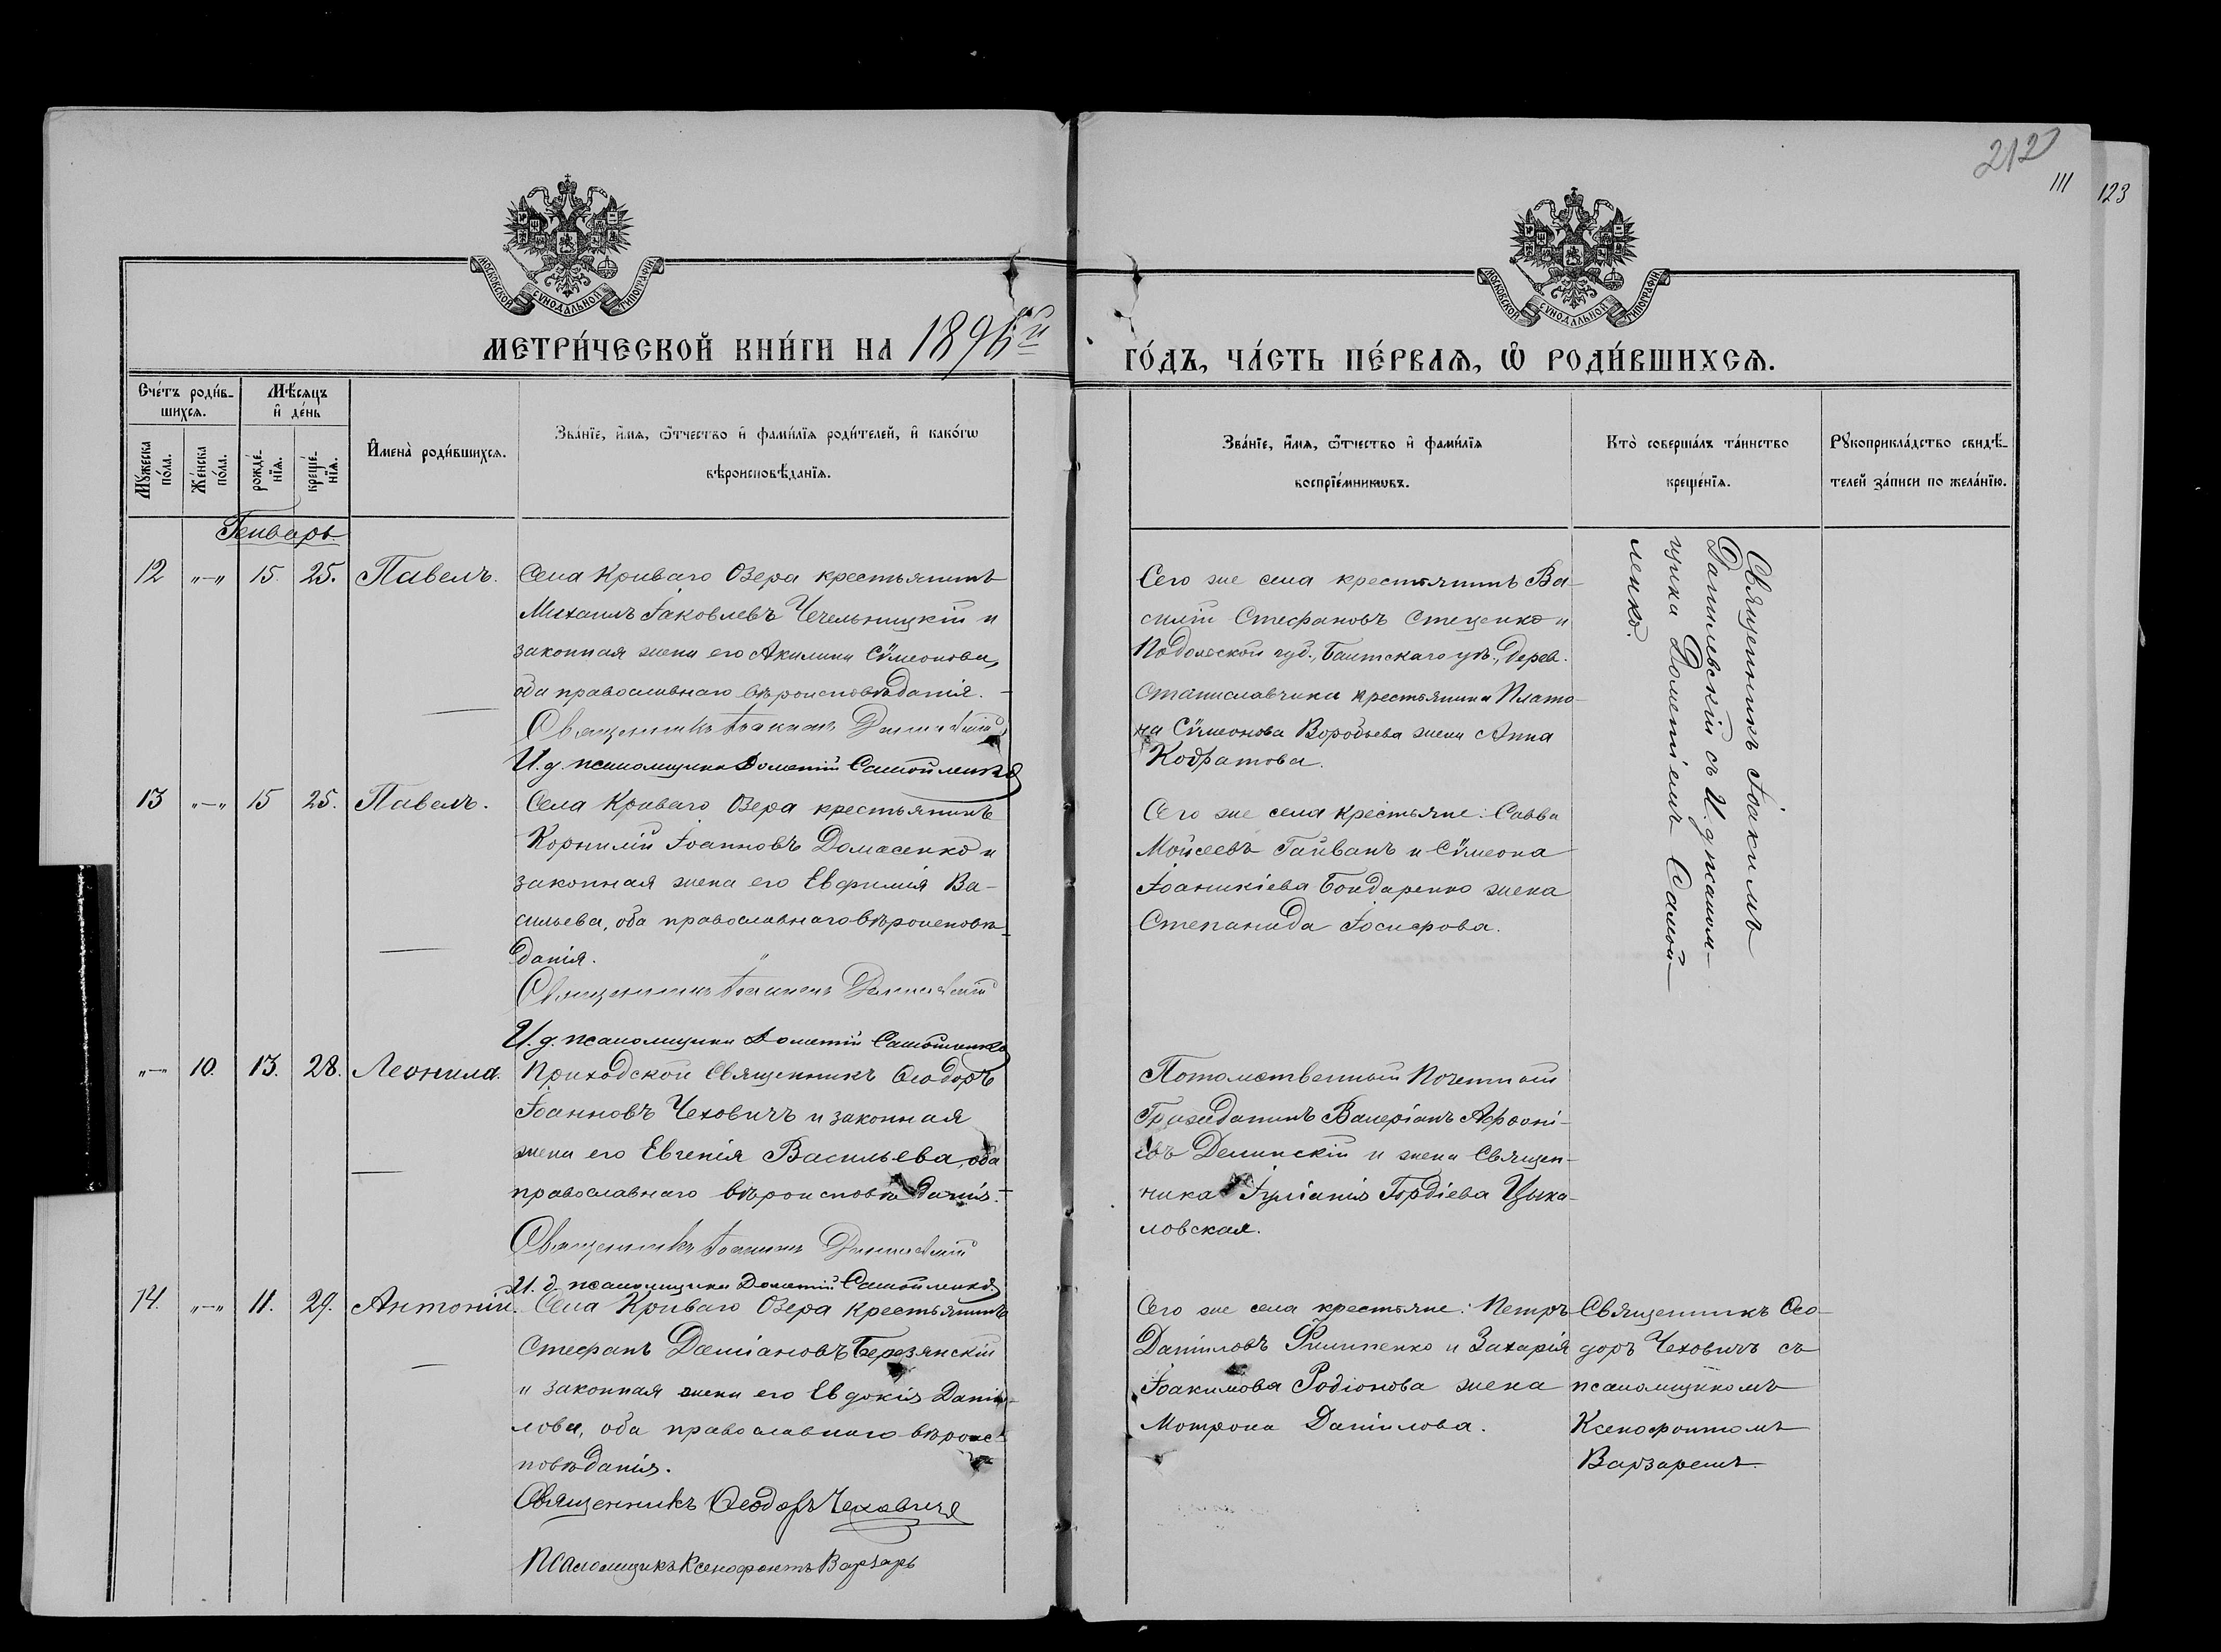 212
111
123
МОСКОВСКОЙ СѴНОДАЛЬНОЙ ТИПОГРАФІИ
МОСКОВСКОЙ СѴНОДАЛЬНОЙ ТИПОГРАФІИ
МЕТРИ́ЧЕСКОЙ КНИ́ГИ НА 1896ой
ГО́ДЪ, ЧА́СТЬ ПЕ́РВАѦ, Ѡ҆ РОДИ́ВШИХСѦ.
Сче́тъ роди́в-
шихсѧ.
Мѣ́сѧцъ
и҆ де́нь
Мꙋ́жеска
по́ла.
Же́нска
по́ла.
рожде́-
нїѧ.
креще́-
нїѧ.
И҆мена̀ роди́вшихсѧ.
Зва́нїе, и҆́мѧ, ѻ҆́тчество и҆ фами́лїѧ роди́телей, и҆ како́гѡ
вѣроисповѣ́данїѧ.
Зва́нїе, и҆́мѧ, ѻ҆́тчество и҆ фами́лїѧ
воспрїе́мникѡвъ.
Кто̀ соверша́лъ та́инство
креще́нїѧ.
Рꙋкоприкла́дство свидѣ́-
телей за́писи по жела́нїю.
Генварь.
12 „—„ 15. 25. Павелъ.
Села Криваго Озера крестьянинъ
Михаилъ Іаковлевъ Чечельницкій и
законная жена его Акилина Сѵмеонова,
оба православнаго вѣроисповѣданія. —
Священникъ Іоакимъ Данилевскій
И. д. псаломщика Дометій Самойленко
Сего же села крестьянинъ Ва-
силій Стефановъ Стеценко и
Подольской губ., Балтскаго уѣ., дерев.
Станиславчика крестьянина Плато-
на Сѵмеонова Воробьева жена Анна
Кодратова.
Священникъ Іоакимъ
Данилевскій съ И. д. псалом-
щика Дометіемъ Самой-
ленко.
13 „—„ 15 25. Павелъ.
Села Криваго Озера крестьянинъ
Корнилій Іоанновъ Домасенко и
законная жена его Евфимія Ва-
сильева, оба православнаго вѣроисповѣ-
данія.
Священникъ Іоакимъ Данилевскій
И. д. псаломщика Дометій Самойленко
Сего же села крестьяне: Савва
Мойсеевъ Гайванъ и Сѵмеона
Іоаникіева Бондаренко жена
Степанида Іосифова.
„—„ 10. 13. 28. Леонила.
Приходской Священникъ Ѳеодоръ
Іоанновъ Чеховичъ и законная
жена его Евгенія Васильева, оба
православнаго вѣроисповѣданія. —
Священникъ Іоакимъ Данилевскій
И. д. псаломщика Дометій Самойленко
Потомственный Почетный
Гражданинъ Валеріанъ Афоні-
евъ Делинскій и жена Священ-
ника Іуліанія Гордіева Цыка-
ловская.
14. „—„ 11. 29. Антоній.
Села Криваго Озера крестьянинъ
Стефанъ Даміановъ Березянскій
и законная жена его Евдокія Данії-
лова, оба православнаго вѣроис-
повѣданія.
Священникъ Ѳеодоръ Чеховичъ
Псаломщикъ Ксенофонтъ Варзарь
Сего же села крестьяне: Петръ
Даніиловъ Филипенко и Захарія
Іоакимова Родіонова жена
Мотрона Даніилова.
Священникъ Ѳео-
доръ Чеховичъ съ
псаломщикомъ
Ксенофонтомъ
Варзаремъ.